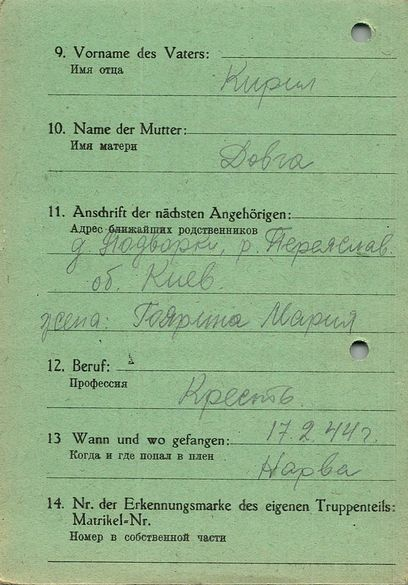 9. Vorname des Vaters:
Имя отца
Кирил
10. Name der Mutter:
Имя матери
Довга
11. Anschrift der nächsten Angehörigen:
Адрес ближайших родственников
д. Подворки, р. Переяслав.
об. Киев.
жена: Гоярина Мария
12. Beruf:
Профессия
Кресть.
13 Wann und wo gefangen: 17.2.44 г.
Когда и где попал в плен
Нарва
14. Nr. der Erkennungsmarke des eigenen Truppenteils:
Matrikel-Nr.
Номер в собственной части